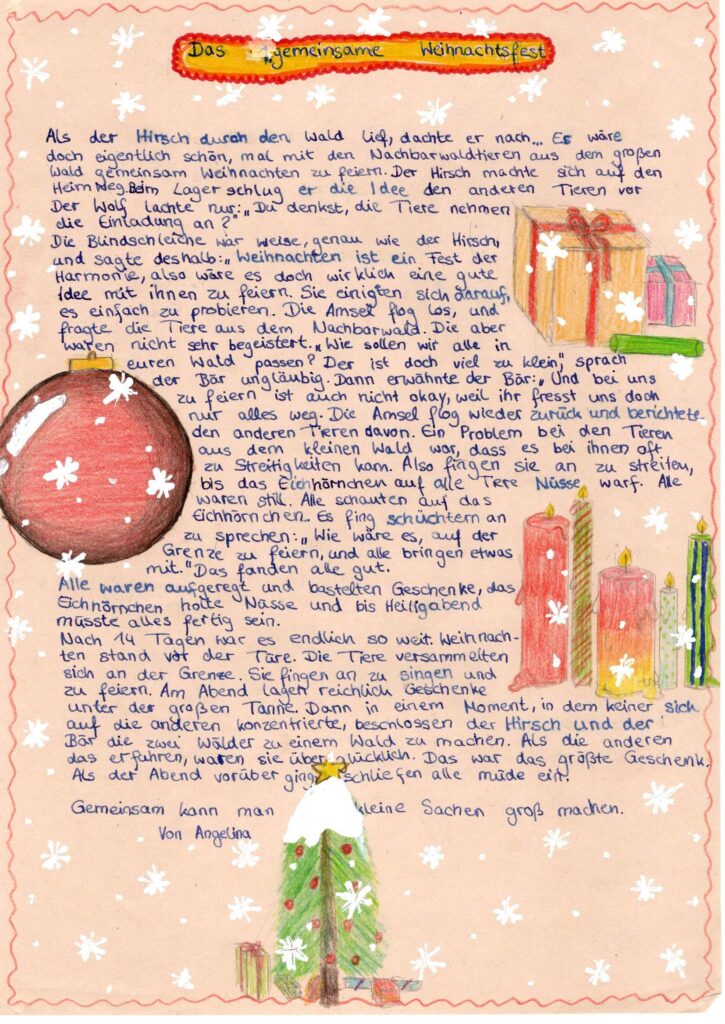 Das gemeinsame Weihnachtsfest
Als der Hirsch durch den Wald lief, dachte er nach... Es wäre
doch eigentlich schön, mal mit den Nachbarwaldtieren aus dem großen
Wald gemeinsam Weihnachten zu feiern. Der Hirsch machte sich auf den
Heimweg. Beim Lager schlug er die Idee den anderen Tieren vor
Der Wolf lachte nur: „Du denkst, die Tiere nehmen
die Einladung an?"
Die Blindschleiche war weise, genau wie der Hirsch,
und sagte deshalb: „Weihnachten ist ein Fest der
Harmonie, also wäre es doch wirklich eine gute
Idee mit ihnen zu feiern. Sie einigten sich darauf,
es einfach zu probieren. Die Amsel flog los, und
fragte die Tiere aus dem Nachbarwald. Die aber
waren nicht sehr begeistert. „Wie sollen wir alle in
euren Wald passen? Der ist doch viel zu klein", sprach
der Bär ungläubig. Dann erwähnte der Bär: „Und bei uns
zu feiern ist auch nicht okay, weil ihr fresst uns doch
nur alles weg. Die Amsel flog wieder zurück und berichtete
den anderen Tieren davon. Ein Problem bei den Tieren
aus dem kleinen Wald war, dass es bei ihnen oft
zu Streitigkeiten kam. Also fingen sie an zu streiten,
bis das Eichhörnchen auf alle Tiere Nüsse warf. Alle
waren still. Alle schauten auf das
Eichhörnchen. Es fing schüchtern an
zu sprechen: „Wie wäre es, auf der
Grenze zu feiern, und alle bringen etwas
mit." Das fanden alle gut.
Alle waren aufgeregt und bastelten Geschenke, das
Eichhörnchen holte Nüsse und bis Heiligabend
müsste alles fertig sein.
Nach 14 Tagen war es endlich so weit. Weihnach-
ten stand vor der Türe. Die Tiere versammelten
sich an der Grenze. Sie fingen an zu singen und
zu feiern. Am Abend lagen reichlich Geschenke
unter der großen Tanne. Dann in einem Moment, in dem keiner sich
auf die anderen konzentrierte, beschlossen der Hirsch und der
Bär die zwei Wälder zu einem Wald zu machen. Als die anderen
das erfuhren, waren sie überglücklich. Das war das größte Geschenk.
Als der Abend vorüber ging schliefen alle müde ein.
Gemeinsam kann man kleine Sachen groß machen.
Von Angelina